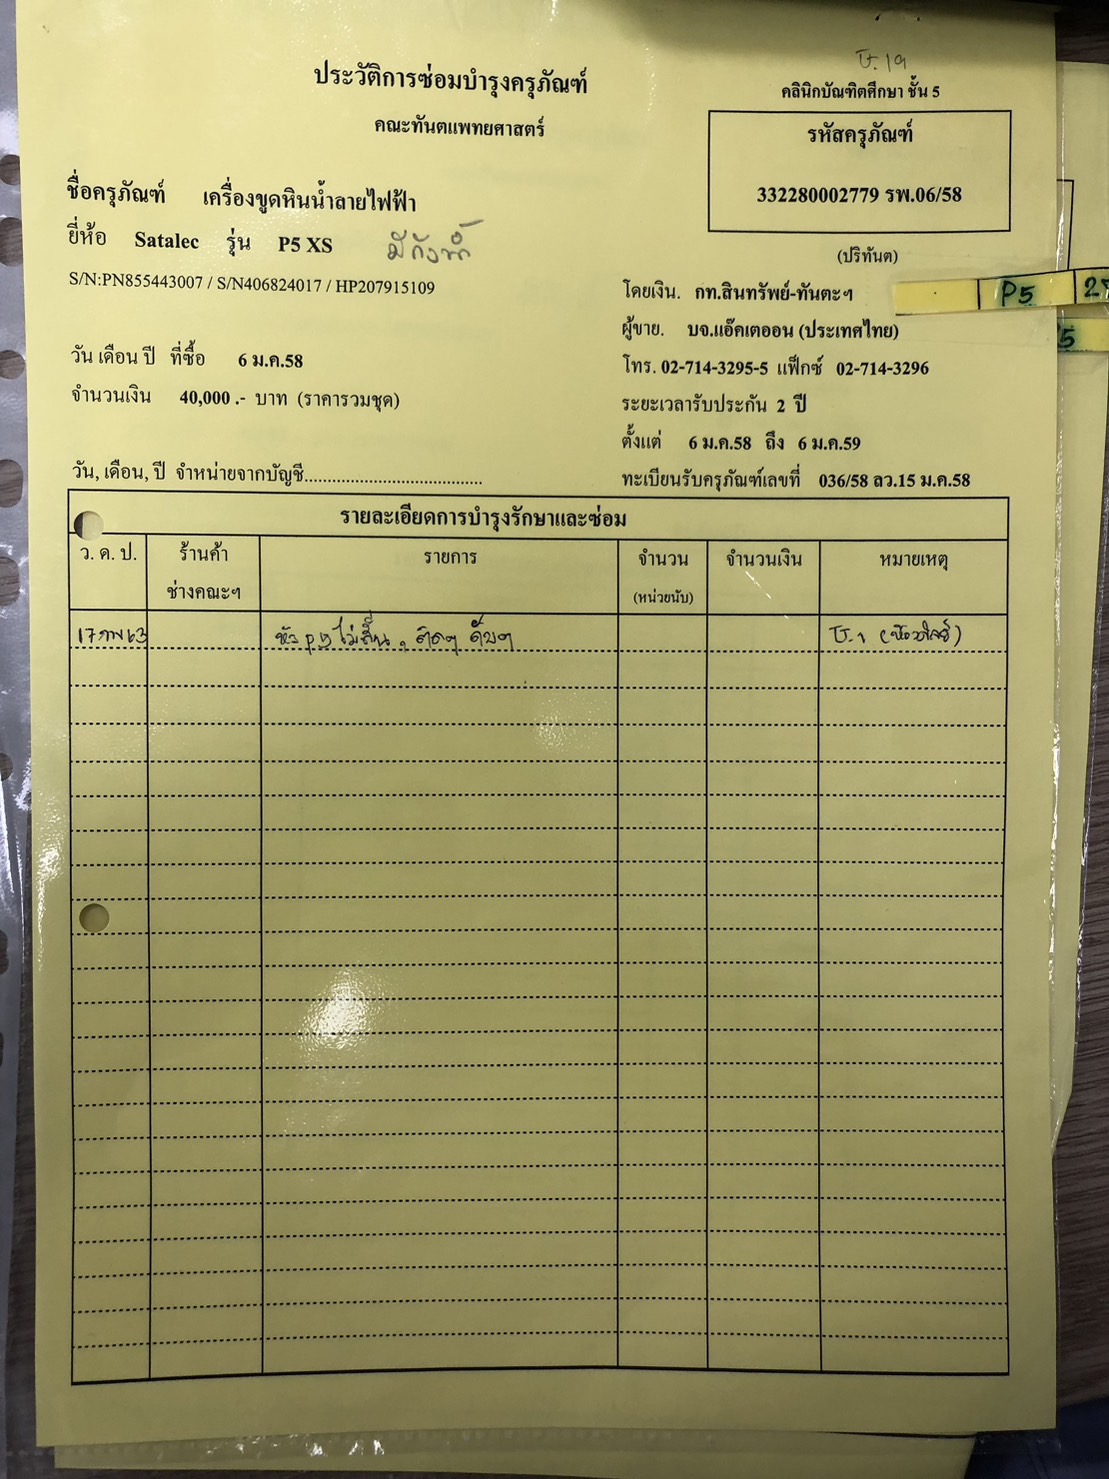 ป.19
ประวัติการซ่อมบำรุงครุภัณฑ์
คลินิกบัณฑิตศึกษา ชั้น 5
คณะทันตแพทยศาสตร์
รหัสครุภัณฑ์
332280002779 รพ.06/58
(ปริทันต)
ชื่อครุภัณฑ์ เครื่องขูดหินน้ำลายไฟฟ้า
ยี่ห้อ Satalec รุ่น P5 XS มีถังน้ำ
S/N:PN855443007 / S/N406824017 / HP207915109
โดยเงิน. กท.สินทรัพย์-ทันตะฯ
P5
ผู้ขาย. บจ.แอ๊คเตออน (ประเทศไทย)
วัน เดือน ปี ที่ซื้อ 6 ม.ค.58
โทร. 02-714-3295-5 แฟ็กซ์ 02-714-3296
จำนวนเงิน 40,000 .- บาท (ราคารวมชุด)
ระยะเวลารับประกัน 2 ปี
ตั้งแต่ 6 ม.ค.58 ถึง 6 ม.ค.59
วัน, เดือน, ปี จำหน่ายจากบัญชี......................................
ทะเบียนรับครุภัณฑ์เลขที่ 036/58 ลว.15 ม.ค.58
รายละเอียดการบำรุงรักษาและซ่อม
ว. ด. ป. ร้านค้า รายการ จำนวน จำนวนเงิน หมายเหตุ
ช่างคณะฯ (หน่วยนับ)
17 กพ 63 หัว P5 ไม่สั่น, ติดๆ ดับๆ ป.1